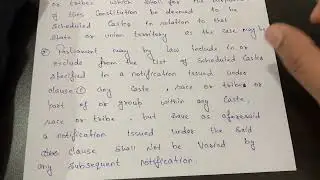 or tribes which shall for the purposes
of this Constitution be deemed to be
Scheduled Castes in relation to that
State or union territory as the case may be
② Parliament may by law include in or
exclude from the list of Scheduled Castes
specified in a notification issued under
clause ① any caste, race or tribe or
part of or group within any caste,
race or tribe, but save as aforesaid
a notification issued under the said
clause shall not be varied by
any subsequent notification.